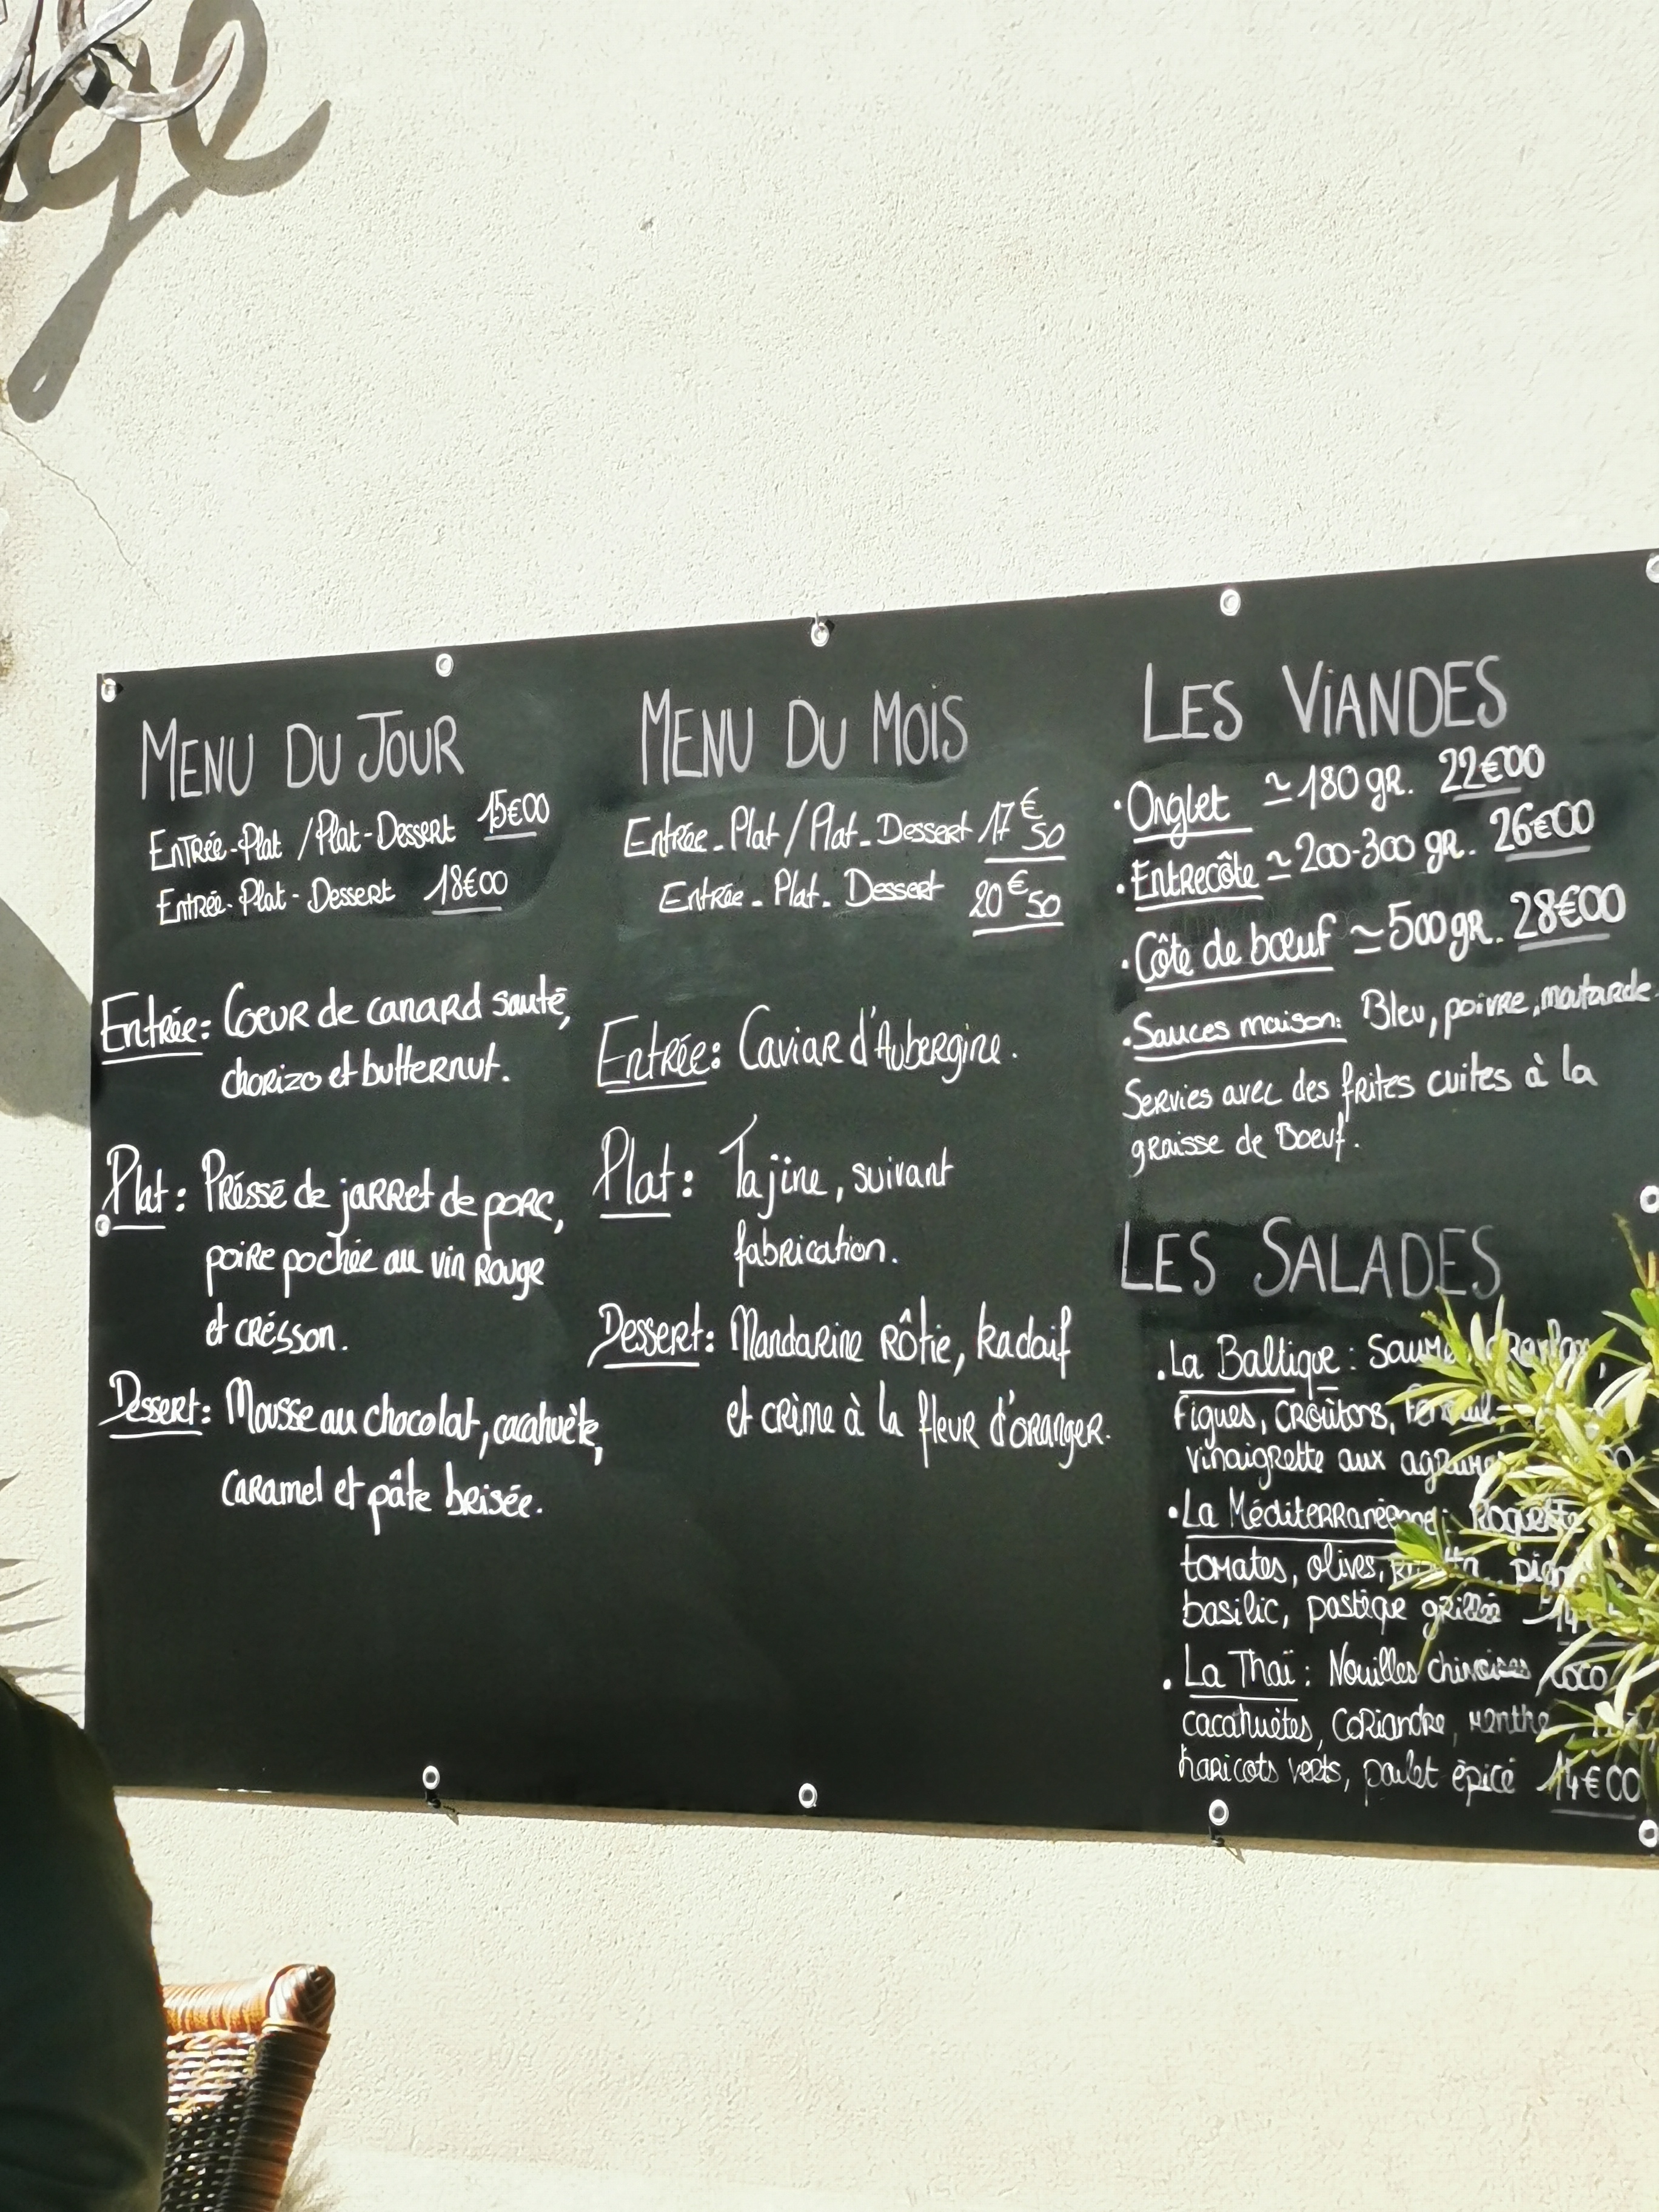 ge
MENU DU JOUR
Entrée-Plat / Plat-Dessert 15€00
Entrée-Plat-Dessert 18€00
Entrée: Coeur de canard sauté,
chorizo et butternut.
Plat: Préssé de jarret de porc,
poire pochée au vin rouge
et crésson.
Dessert: Mousse au chocolat, cacahuète,
caramel et pâte brisée.
MENU DU MOIS
Entrée-Plat / Plat-Dessert 17€50
Entrée-Plat-Dessert 20€50
Entrée: Caviar d'Aubergine.
Plat: Tajine, suivant
fabrication.
Dessert: Mandarine rôtie, kadaif
et crème à la fleur d'oranger.
LES VIANDES
• Onglet ≃ 180 gr. 22€00
• Entrecôte ≃ 200-300 gr. 26€00
• Côte de bœuf ≃ 500 gr. 28€00
• Sauces maison: Bleu, poivre, moutarde
Servies avec des frites cuites à la
graisse de Boeuf.
LES SALADES
• La Baltique:
Figues, croûtons,
vinaigrette aux
• La Méditerranéenne: Roquette
tomates, olives,
basilic, pastèque grillée
• La Thaï: Nouilles chinoises coco
cacahuètes, coriandre, menthe
haricots verts, poulet épicé 14€00